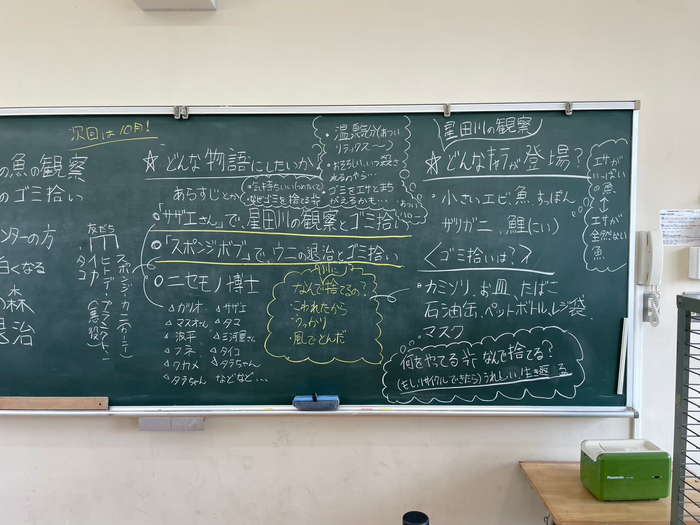 次回は10月!
の魚の観察
のゴミ拾い
ンターの方
白くなる
の森
退治
友だち
スポンジ
カニ
ヒトデ
プランクトン(悪役)
タイ
タコ
☆どんな物語にしたいか
あらすじとか
・気持ちいい(つめたくて)
・温泉気分(あつい
リラックス〜)
・ゴミをエサとまち
がえるかも…
・「サザエさん」で、星田川の観察とゴミ拾い
・「スポンジボブ」で、ウニの退治とゴミ拾い
○ニセモノ博士
△カツオ
△マスオさん
△波平
△フネ
△ワカメ
△タラちゃん
△サザエ
△タコ
△三河屋さん
△タイコ
△タラちゃん
などなど…
なんで捨てるの?
・こわれたから
・うっかり
・風でとんだ
星田川の観察
☆どんなキャラが登場?
小さいエビ、魚、すっぽん
ザリガニ、鯉(たい)
〈ゴミ拾いは?〉
・カミソリ、お皿、たばこ
石油缶、ペットボトル、レジ袋、
・マスク
何をやってる
なんで捨てる?
(もしリサイクルできたら)うれしい、生き返る
エサが
いっぱい
の魚
↕
エサが
全然ない
魚
Panasonic